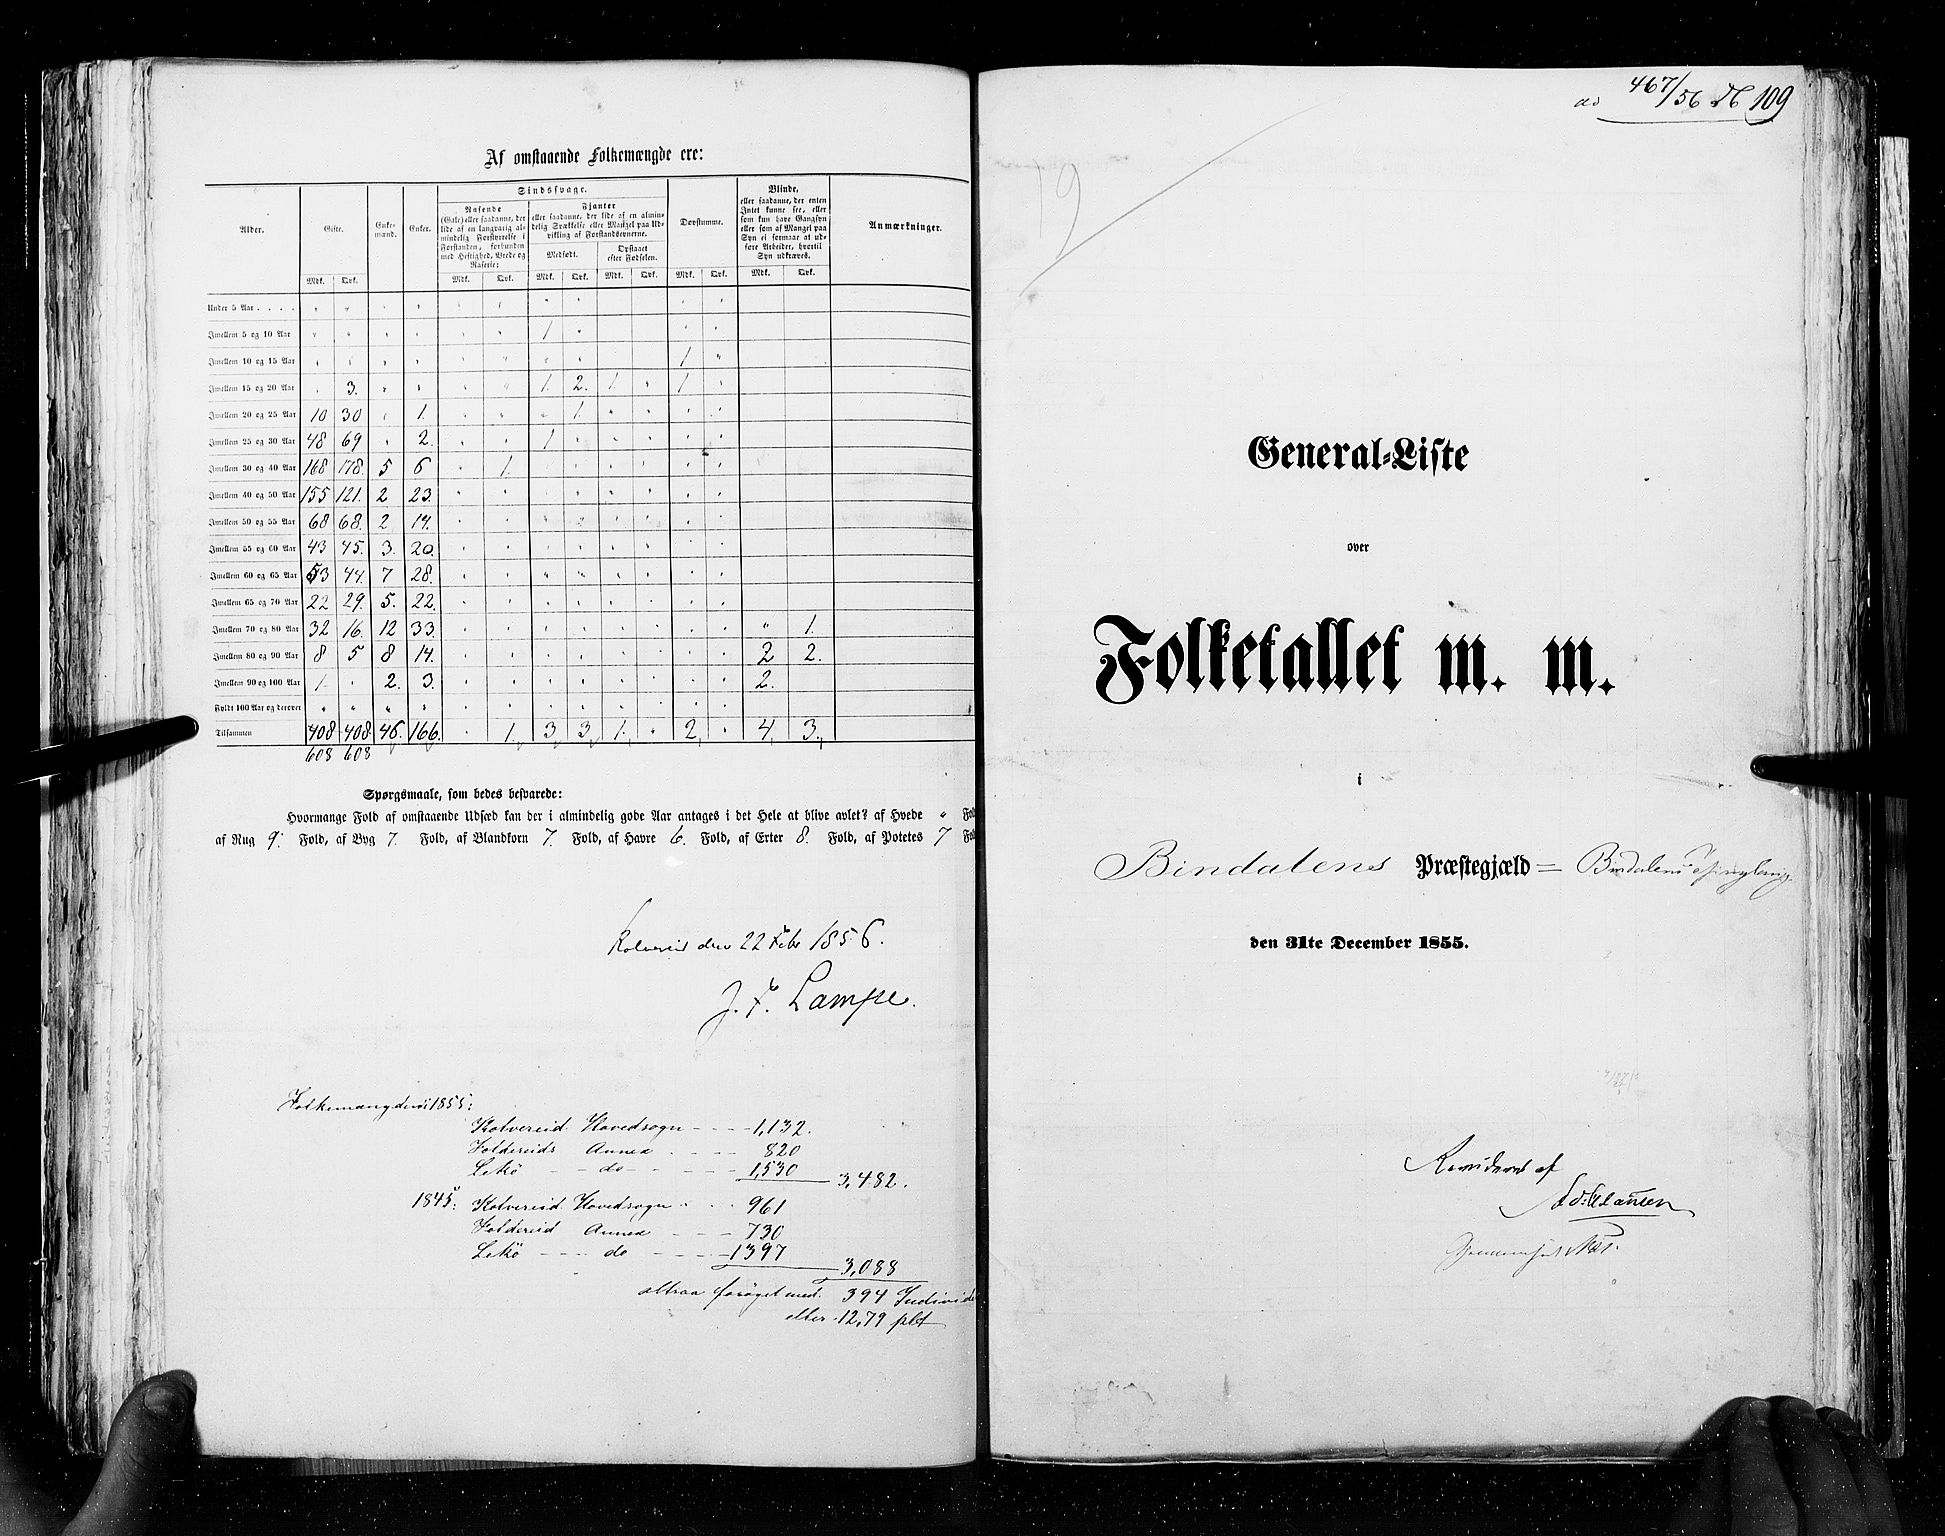 Af omstaaende Folkemængde ere:
Alder. Gifte. Enke-mænd. Enker. Sindssvage. Døvstumme. Blinde, Anmærkninger.
Rasende (Gale) eller saadanne, der lide af en langvarig almindelig Forstyrrelse i Forstanden, forbunden med Heftighed, Vrede og Raserie:
Fjanter eller saadanne, der lide af en almindelig Svækkelse eller Mangel paa Udvikling af Forstandsevnerne.
Medfødt. Opstaaet efter Fødselen.
eller saadanne, der enten Intet kunne see, eller som kun have Gangsyn eller som af Mangel paa Syn ei formaae at udføre Arbeider, hvortil Syn udkræves.
Mdk. Qvk. Mdk. Qvk. Mdk. Qvk. Mdk. Qvk. Mdk. Qvk. Mdk. Qvk.
Under 5 Aar . . . .
Imellem 5 og 10 Aar 1
Imellem 10 og 15 Aar 1
Imellem 15 og 20 Aar 3. 1. 2. 1. 1
Imellem 20 og 25 Aar 10 30 1. 1.
Imellem 25 og 30 Aar 48 69 2. 1
Imellem 30 og 40 Aar 168 178. 5 6 1.
Imellem 40 og 50 Aar 155 121. 2 23.
Imellem 50 og 55 Aar 68 68. 2 14.
Imellem 55 og 60 Aar 43 45. 3. 20.
Imellem 60 og 65 Aar 53 44. 7 28.
Imellem 65 og 70 Aar 22 29. 5. 22.
Imellem 70 og 80 Aar 32 16. 12 33. " 1.
Imellem 80 og 90 Aar 8 5 8 14. 2 2.
Imellem 90 og 100 Aar 1 2. 3. 2.
Fyldt 100 Aar og derover
Tilsammen 408 408 46. 166. 1. 3 3 1. 2 4 3.
608 608
Spørgsmaale, som bedes besvarede:
Hvormange Fold af omstaaende Udsæd kan der i almindelig gode Aar antages i det Hele at blive avlet? af Hvede "
af Rug 9. Fold, af Byg 7. Fold, af Blandkorn 7. Fold, af Havre 6. Fold, af Erter 8. Fold, af Potetes 7
Kolvereid den 22 Febr 1856.
J. F. Lampe.
Folkemængden i 1855:
Kolvereid Hovedsogn - - - - 1,132.
Foldereids Annex . - - - 820
Lekö - - do - - - - - 1,530 3,482.
1845: Kolvereid Hovedsogn . . . 961
Foldereid Annex - - - 730
Lekö - - - do - - - - 1397 3,088
altsaa forøget med. 394
eller 12,79 pCt
ad 467/56 109
2
General-Liste
over
Folketallet m. m.
i
Bindalens Præstegjæld = Bindalens
den 31te December 1855.
Revideret af